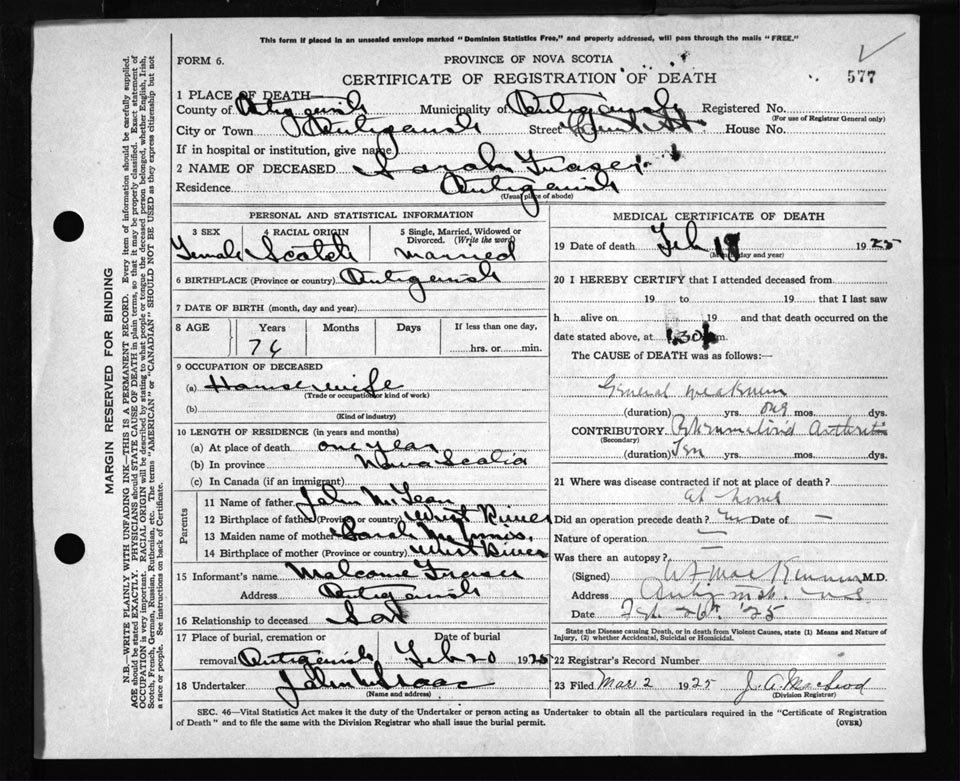 This form if placed in an unsealed envelope marked "Dominion Statistics Free," and properly addressed, will pass through the mails "FREE."
FORM 6.
PROVINCE OF NOVA SCOTIA
CERTIFICATE OF REGISTRATION OF DEATH
577
1 PLACE OF DEATH—
County of Antigonish Municipality of Antigonish Registered No.
(For use of Registrar General only)
City or Town Antigonish Street St. House No.
If in hospital or institution, give name
2 NAME OF DECEASED Sarah Fraser
Residence Antigonish
(Usual place of abode)
PERSONAL AND STATISTICAL INFORMATION
3 SEX 4 RACIAL ORIGIN 5 Single, Married, Widowed or Divorced. (Write the word)
Female Scotch Married
6 BIRTHPLACE (Province or country) Antigonish
7 DATE OF BIRTH (month, day and year)
8 AGE Years Months Days If less than one day,
76 hrs. or min.
9 OCCUPATION OF DECEASED
(a) Housewife
(Trade or occupation or kind of work)
(b)
(Kind of industry)
10 LENGTH OF RESIDENCE (in years and months)
(a) At place of death one year
(b) In province Nova Scotia
(c) In Canada (if an immigrant)
Parents
11 Name of father John McLean
12 Birthplace of father (Province or country) West River
13 Maiden name of mother Sarah McInnis
14 Birthplace of mother (Province or country) West River
15 Informant's name Malcome Fraser
Address Antigonish
16 Relationship to deceased Son
17 Place of burial, cremation or Date of burial
removal Antigonish Feb 20 1925
18 Undertaker John McIsaac
(Name and address)
MEDICAL CERTIFICATE OF DEATH
19 Date of death Feb 18 1925
(Month, day and year)
20 I HEREBY CERTIFY that I attended deceased from
19 to 19 that I last saw
h alive on 19 and that death occurred on the
date stated above, at 1.30 m.
The CAUSE of DEATH was as follows:—
General weakness
(duration) yrs. one mos. dys.
CONTRIBUTORY Rheumatoid Arthritis
(Secondary)
(duration) Ten yrs. mos. dys.
21 Where was disease contracted if not at place of death?
at home
Did an operation precede death? no Date of —
Nature of operation —
Was there an autopsy? —
(Signed) M.D.
Address Antigonish. N.S.
Date Feb. 26th '25
State the Disease causing Death, or in death from Violent Causes, state (1) Means and Nature of Injury, (2) whether Accidental, Suicidal or Homicidal.
22 Registrar's Record Number
23 Filed Mar 2 1925 J. A. MacLeod
(Division Registrar)
SEC. 46—Vital Statistics Act makes it the duty of the Undertaker or person acting as Undertaker to obtain all the particulars required in the "Certificate of Registration
of Death" and to file the same with the Division Registrar who shall issue the burial permit. (OVER)
MARGIN RESERVED FOR BINDING
N.B.—WRITE PLAINLY WITH UNFADING INK—THIS IS A PERMANENT RECORD. Every item of information should be carefully supplied.
AGE should be stated EXACTLY. PHYSICIANS should STATE CAUSE OF DEATH in plain terms, so that it may be properly classified. Exact statement of
OCCUPATION is very important. RACIAL ORIGIN will be described by stating to what people or tongue the deceased person belonged, whether English, Irish,
Scotch, French, German, Russian, Ruthenian, etc. The terms "AMERICAN" or "CANADIAN" SHOULD NOT BE USED as they express citizenship but not
a race or people. See instructions on back of Certificate.